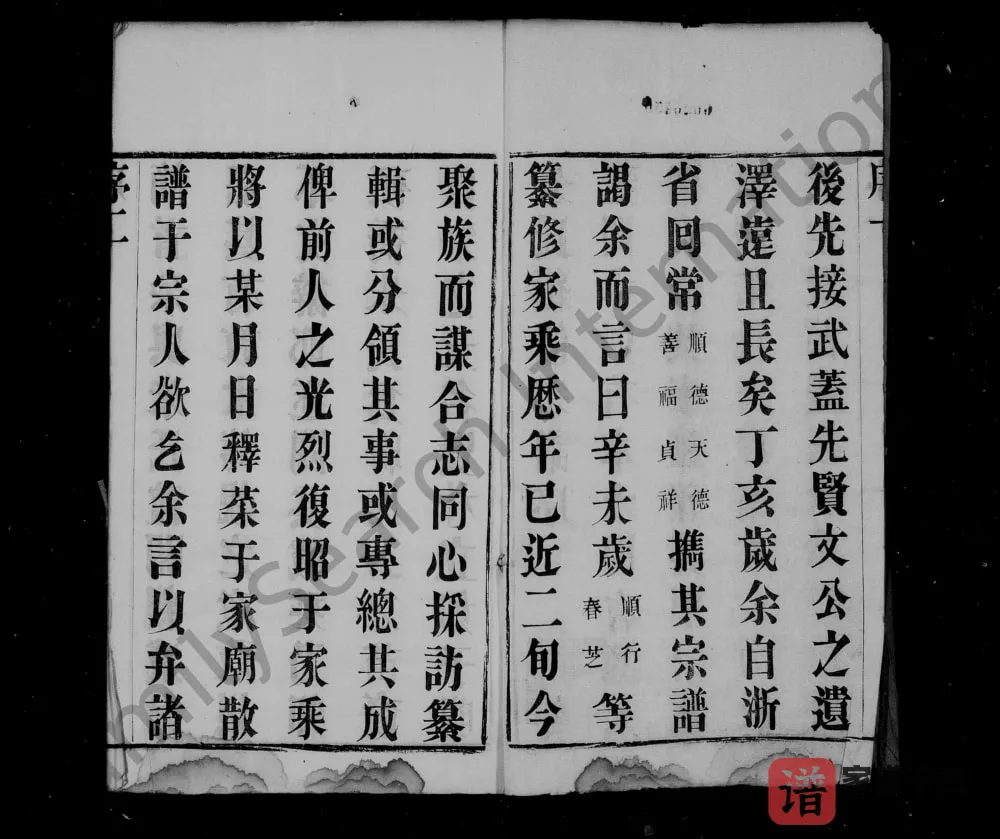 後先接武蓋先賢文公之遺
澤遠且長矣丁亥歲余自浙
省回常順德天德善福貞祥攜其宗譜
謁余而言曰辛未歲順行春芝等
纂修家乘歷年已近二旬今
聚族而謀合志同心採訪纂
輯或分領其事或專總其成
俾前人之光烈復昭于家乘
將以某月日釋菜于家廟散
譜于宗人欲乞余言以弁諸
序二
FamilySearch International
谱